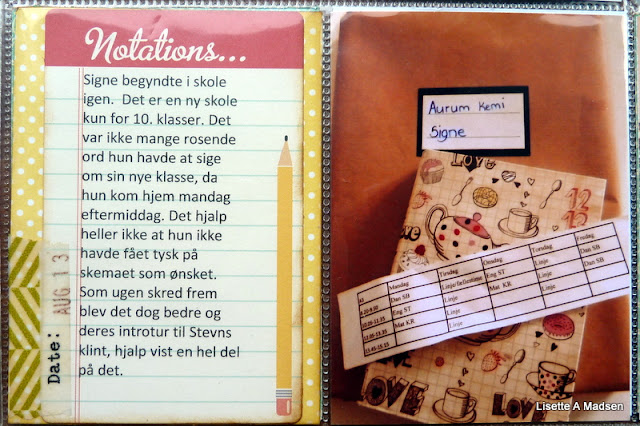 Notations...
Signe begyndte i skole
igen.  Det er en ny skole
kun for 10. klasser. Det
var ikke mange rosende
ord hun havde at sige
om sin nye klasse, da
hun kom hjem mandag
eftermiddag. Det hjalp
heller ikke at hun ikke
havde fået tysk på
skemaet som ønsket.
Som ugen skred frem
blev det dog bedre og
deres introtur til Stevns
klint, hjalp vist en hel del
på det.
Date: AUG 13
Aurum Kemi
Signe
LOVE
12
13
Mandag Tirsdag Onsdag Torsdag Fredag
Dan SB Linje/fællestime Eng ST Linje Dan SB
Eng ST Linje Mat KR Linje Dan SB
Mat KR Linje Linje
Linje
LOVE
LOVE
Lisette A Madsen